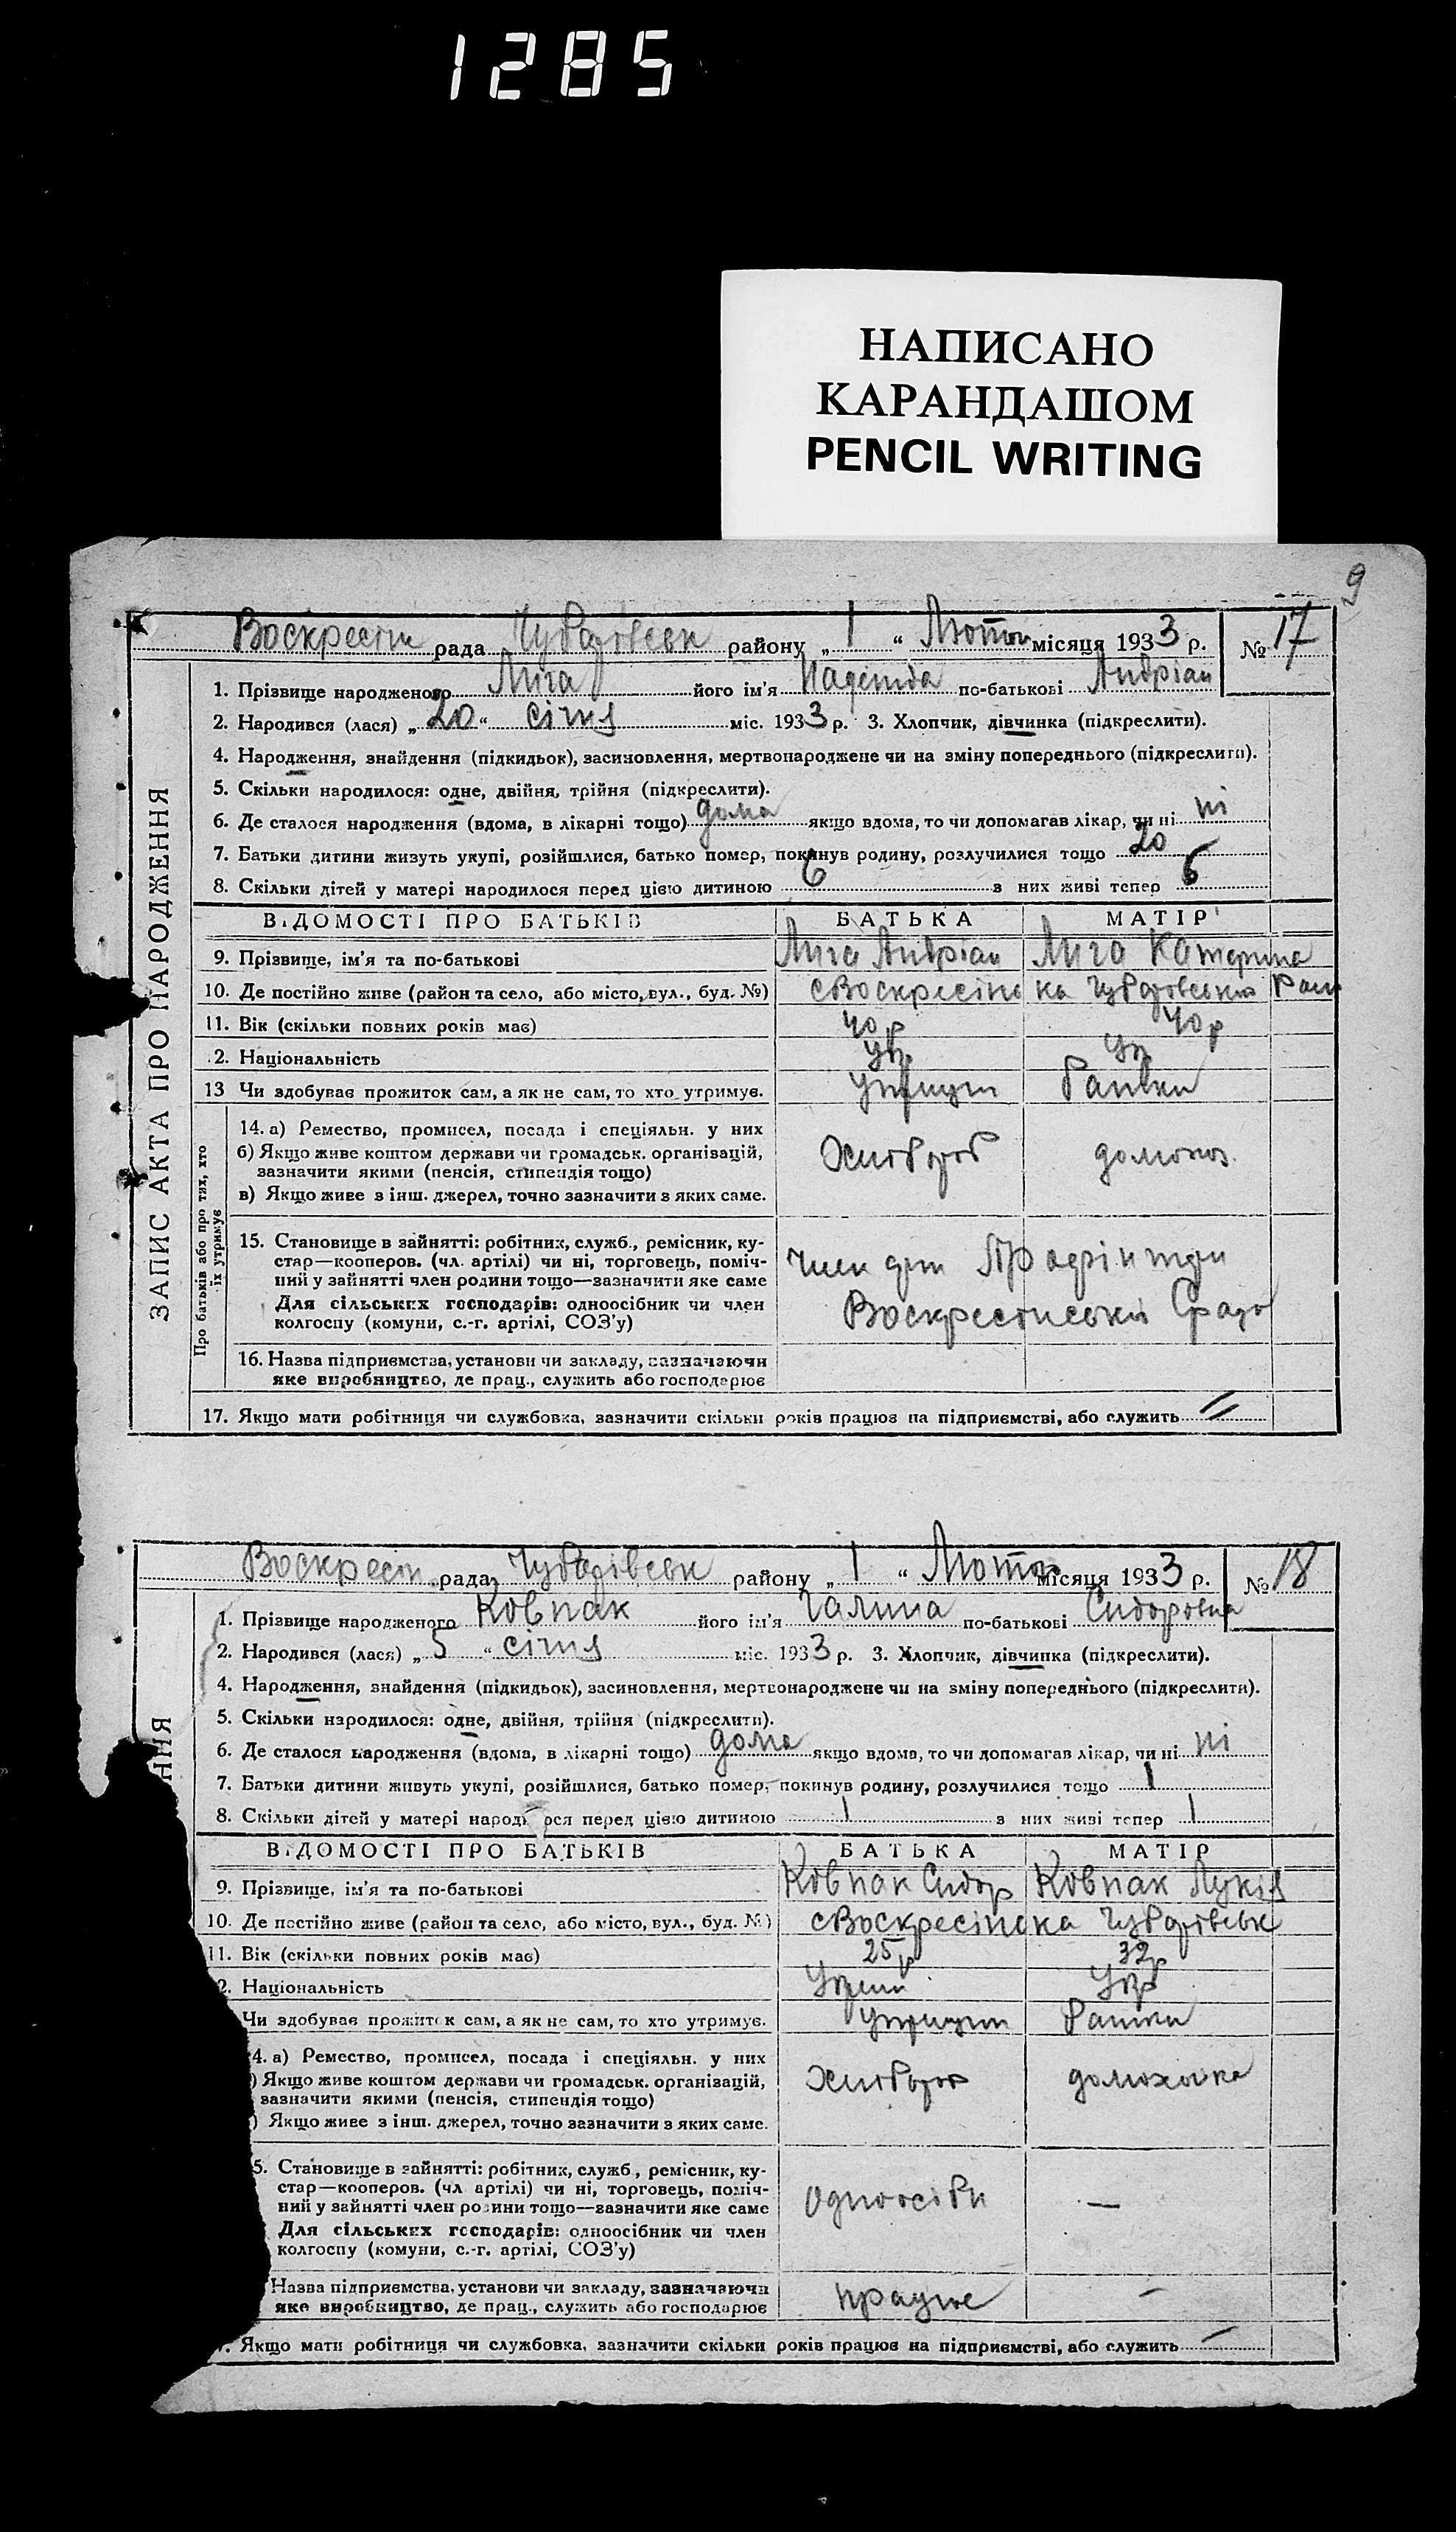 1285
НАПИСАНО
КАРАНДАШОМ
PENCIL WRITING
9
ЗАПИС АКТА ПРО НАРОДЖЕННЯ
Воскресін рада Чубарівськ району „ 1 “ Лютого місяця 1933 р. № 17
1. Прізвище народженого Лига його ім'я Надежда по-батькові Андріан
2. Народився (лася) „ 20 “ січня міс. 1933 р. 3. Хлопчик, дівчинка (підкреслити).
4. Народження, знайдення (підкидьок), засиновлення, мертвонароджене чи на зміну попереднього (підкреслити).
5. Скільки народилося: одне, двійня, трійня (підкреслити).
6. Де сталося народження (вдома, в лікарні тощо) дома якщо вдома, то чи допомагав лікар, чи ні ні
7. Батьки дитини живуть укупі, розійшлися, батько помер, покинув родину, розлучилися тощо 20
8. Скільки дітей у матері народилося перед цією дитиною 6 з них живі тепер 6
ВІДОМОСТІ ПРО БАТЬКІВ БАТЬКА МАТІР
9. Прізвище, ім'я та по-батькові Лига Андріан Лига Катерина
10. Де постійно живе (район та село, або місто, вул., буд. №) с Воскресінка Чубарівський
11. Вік (скільки повних років має) 40 р 40 р
2. Національність Укр Ук
13 Чи здобуває прожиток сам, а як не сам, то хто утримує.
Про батьків або про тих, хто їх утримує
14. а) Ремество, промисел, посада і спеціяльн. у них Хлібороб домохоз.
б) Якщо живе коштом держави чи громадськ. організацій,
зазначити якими (пенсія, стипендія тощо)
в) Якщо живе з інш. джерел, точно зазначити з яких саме.
15. Становище в зайнятті: робітник, служб., ремісник, ку-
стар—кооперов. (чл. артілі) чи ні, торговець, поміч-
ний у зайнятті член родини тощо—зазначити яке саме
Для сільських господарів: одноосібник чи член
колгоспу (комуни, с.-г. артілі, СОЗ'у)
Член
Воскресінської
16. Назва підприємства, установи чи закладу, зазначаючи
яке виробництво, де прац., служить або господарює
17. Якщо мати робітниця чи службовка, зазначити скільки років працює на підприємстві, або служить
ННЯ
Воскресін рада Чубарівськ району „ 1 “ Лютого місяця 1933 р. № 18
1. Прізвище народженого Ковпак його ім'я Галина по-батькові Сидоровна
2. Народився (лася) „ 5 “ січня міс. 1933 р. 3. Хлопчик, дівчинка (підкреслити).
4. Народження, знайдення (підкидьок), засиновлення, мертвонароджене чи на зміну попереднього (підкреслити).
5. Скільки народилося: одне, двійня, трійня (підкреслити).
6. Де сталося народження (вдома, в лікарні тощо) дома якщо вдома, то чи допомагав лікар, чи ні ні
7. Батьки дитини живуть укупі, розійшлися, батько помер, покинув родину, розлучилися тощо 1
8. Скільки дітей у матері народилося перед цією дитиною 1 з них живі тепер 1
ВІДОМОСТІ ПРО БАТЬКІВ БАТЬКА МАТІР
9. Прізвище, ім'я та по-батькові Ковпак Сидор Ковпак Лукія
10. Де постійно живе (район та село, або місто, вул., буд. №) с Воскресінка Чубарівськ
11. Вік (скільки повних років має) 25 р 32 р
2. Національність Укр
Чи здобуває прожиток сам, а як не сам, то хто утримує.
4. а) Ремество, промисел, посада і спеціяльн. у них Хлібороб домохазяйка
) Якщо живе коштом держави чи громадськ. організацій,
зазначити якими (пенсія, стипендія тощо)
) Якщо живе з інш. джерел, точно зазначити з яких саме.
5. Становище в зайнятті: робітник, служб., ремісник, ку-
стар—кооперов. (чл. артілі) чи ні, торговець, поміч-
ний у зайнятті член родини тощо—зазначити яке саме
Для сільських господарів: одноосібник чи член
колгоспу (комуни, с.-г. артілі, СОЗ'у)
Одноосібн —
Назва підприємства, установи чи закладу, зазначаючи
яке виробництво, де прац., служить або господарює
працює —
. Якщо мати робітниця чи службовка, зазначити скільки років працює на підприємстві, або служить —